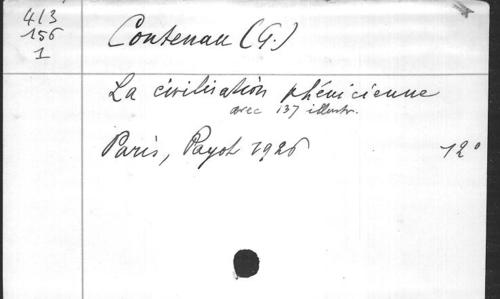 413
156
1
Contenau (G.)
La civilisation phénicienne
avec 137 illustr.
Paris, Payot 1926
12°